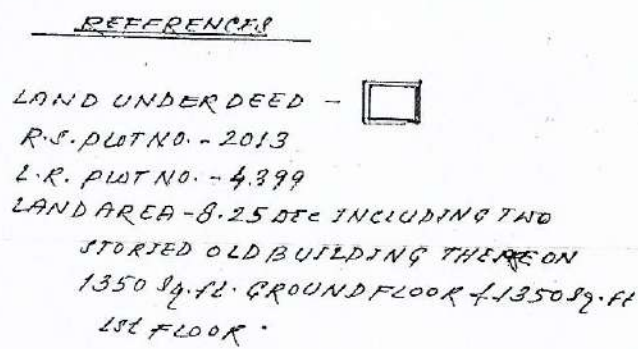 REFERENCES
LAND UNDER DEED -
R.S. PLOT NO. - 2013
L.R. PLOT NO. - 4399
LAND AREA - 8.25 DEC INCLUDING TWO
STORIED OLD BUILDING THEREON
1350 Sq.ft. GROUND FLOOR & 1350 Sq.ft
1st FLOOR.